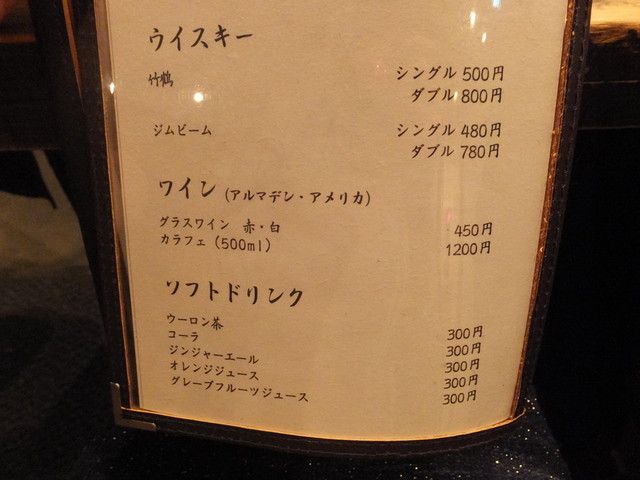 ウイスキー
竹鶴 シングル 500円
ダブル 800円
ジムビーム シングル 480円
ダブル 780円
ワイン (アルマデン・アメリカ)
グラスワイン 赤・白 450円
カラフェ(500ml) 1200円
ソフトドリンク
ウーロン茶 300円
コーラ 300円
ジンジャーエール 300円
オレンジジュース 300円
グレープフルーツジュース 300円